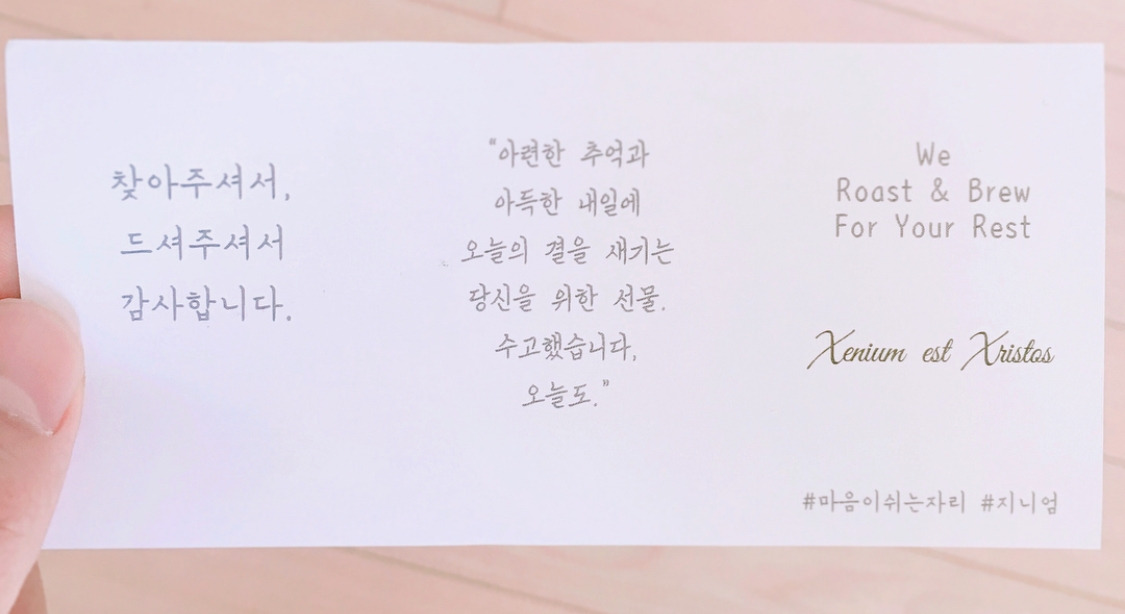 찾아주셔서,
드셔주셔서
감사합니다.
“아련한 추억과
아득한 내일에
오늘의 결을 새기는
당신을 위한 선물.
수고했습니다,
오늘도.”
We
Roast & Brew
For Your Rest
Xenium est Xristos
#마음이쉬는자리 #지니엄